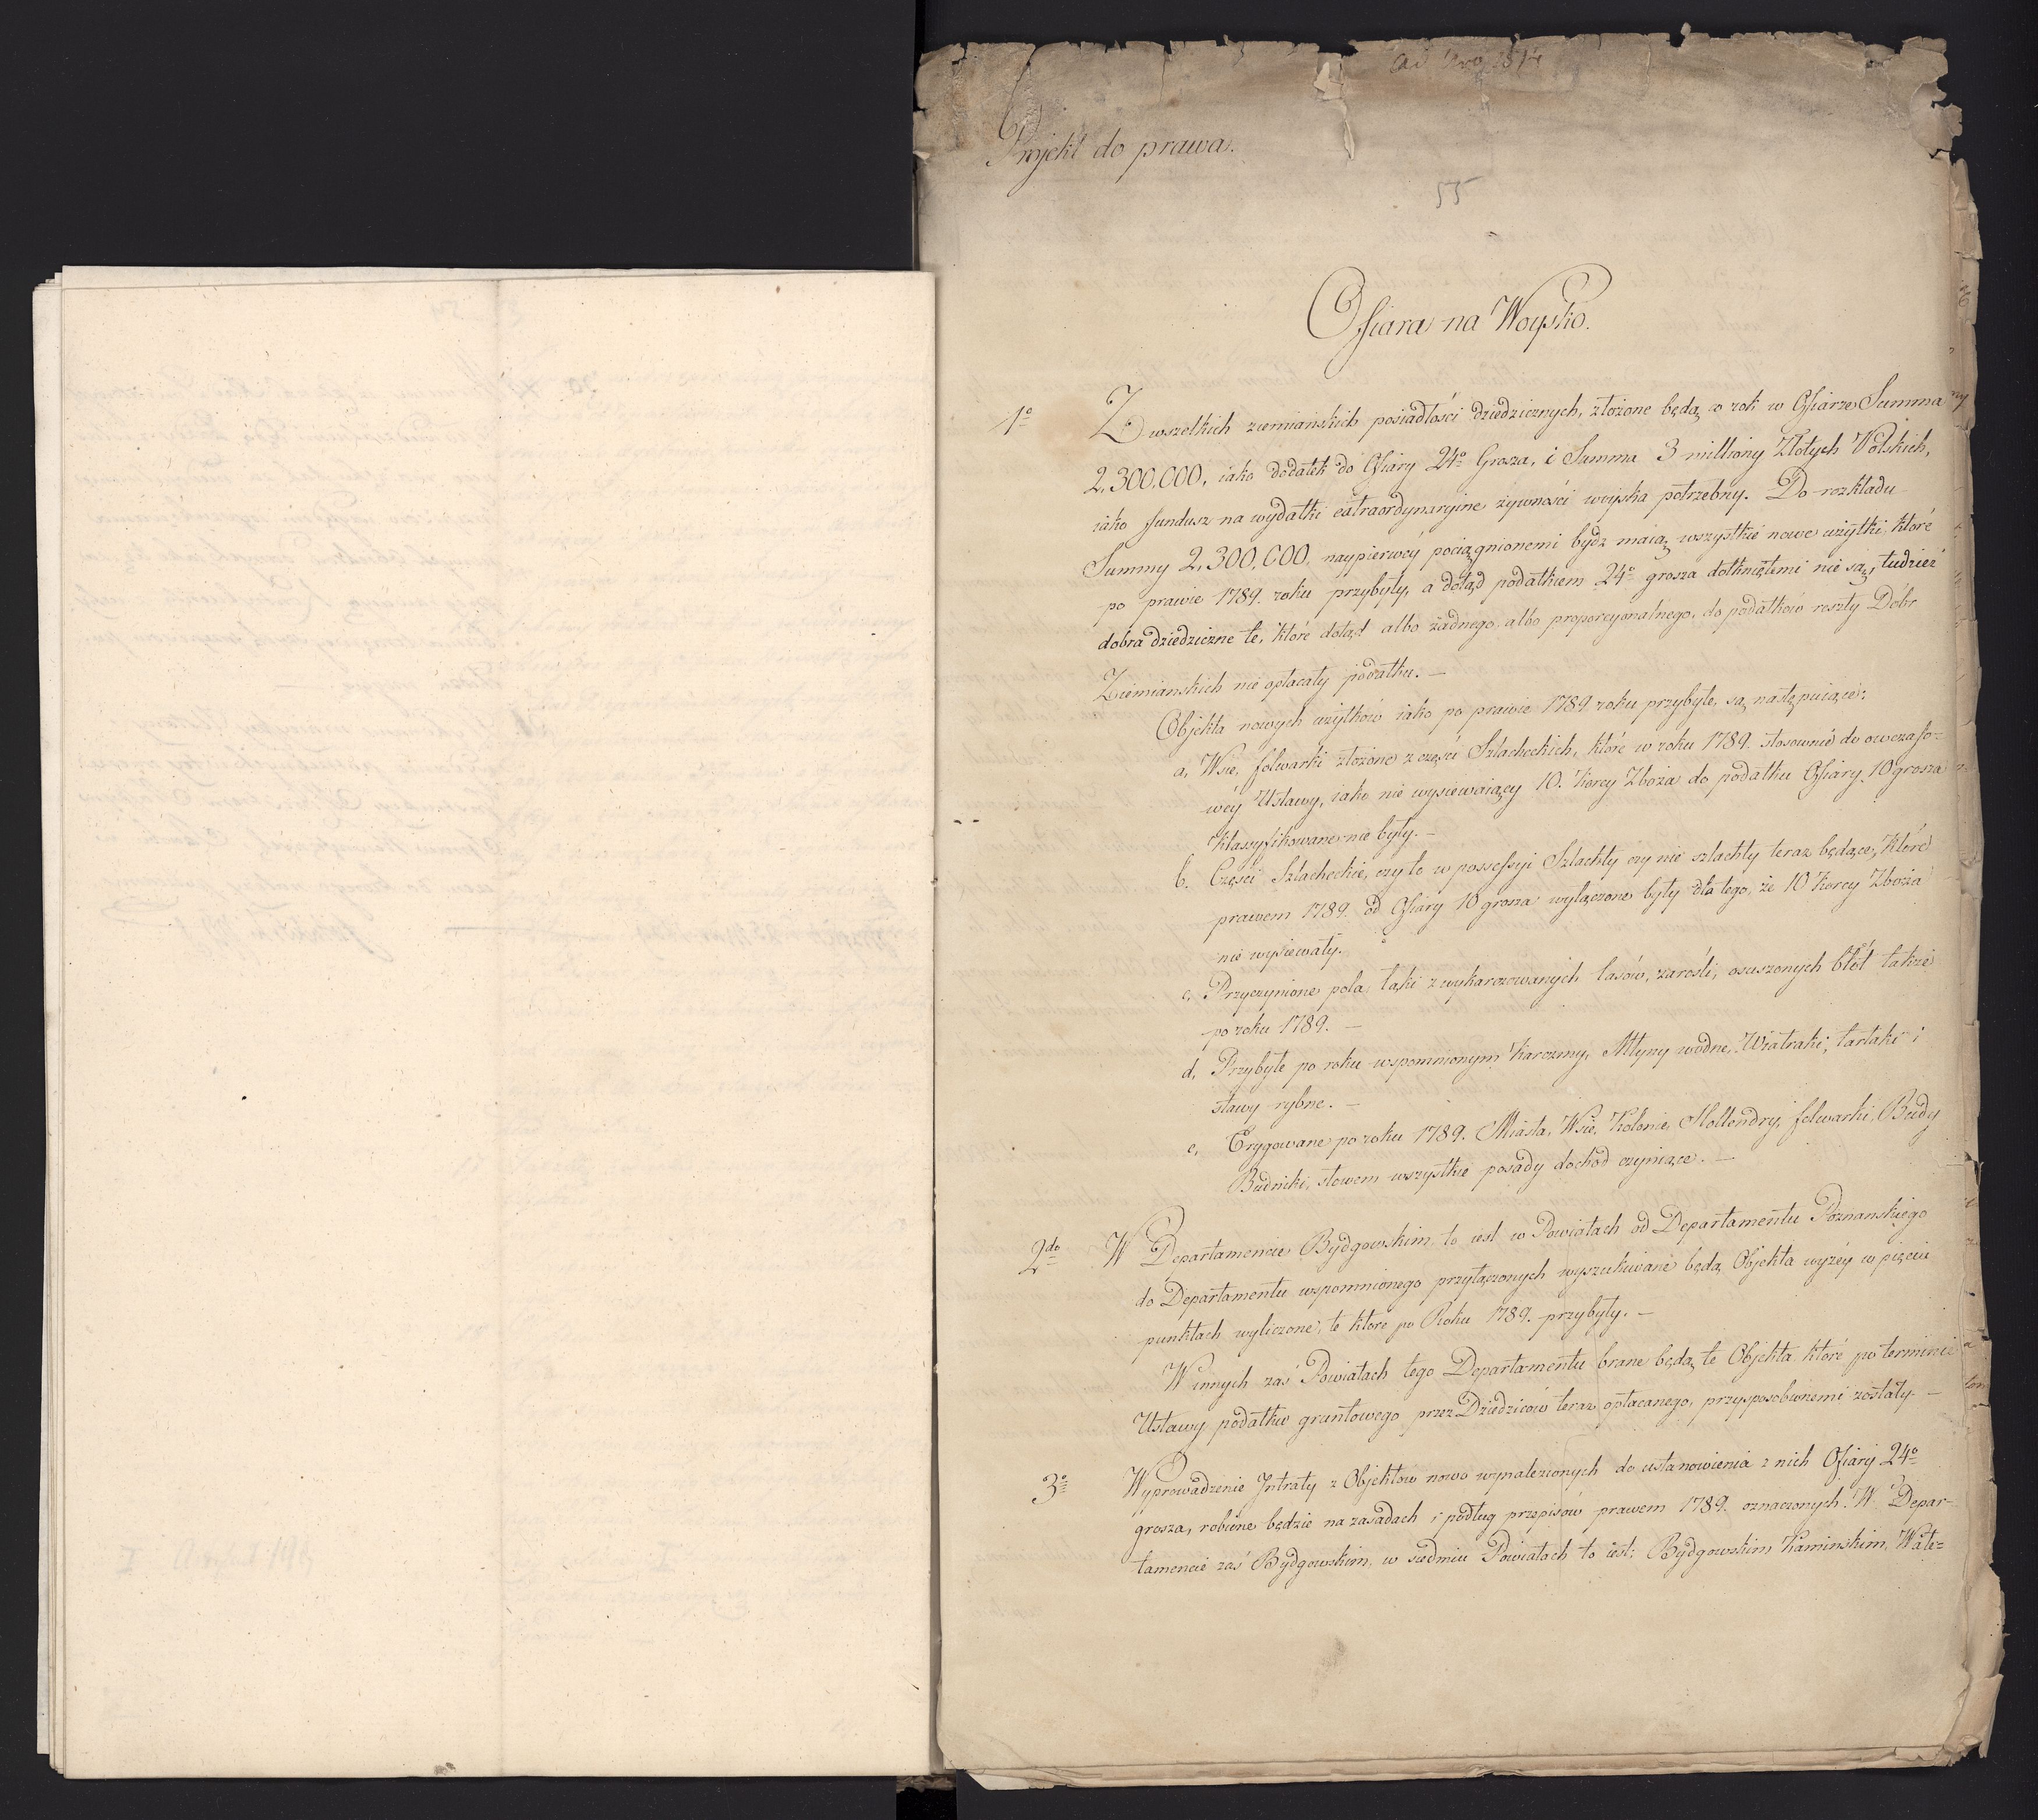 Projekt do prawa.
55
Ofiara na Woysko.
1o Z wszelkich ziemiańskich posiadłości dziedzicznych, złożone będą w rok w Ofiarze Summa
2,300,000, iako dodatek do Ofiary 24o Grosza, i Summa 3 milliony Złotych Polskich,
iako fundusz na wydatki extraordynaryine żywności woyska potrzebny. Do rozkładu
Summy 2,300,000 naypierwéy pociągnionemi bydź maią wszystkie nowe użytki które
po prawie 1789. roku przybyły, a dotąd podatkiem 24o grosza dotkniętemi nie są, tudzież
dobra dziedziczne te, które dotąd albo żadnego albo proporcyonalnego do podatków reszty Dóbr
Ziemianskich nie opłacały podatku. —
Objekta nowych użytków iako po prawie 1789 roku przybyłe, są następuiące:
a, Wsie, folwarki złożone z części Szlacheckich, które w roku 1789. stosownie do owczaso-
wéy Ustawy, iako nie wysiewaiący 10. Korcy Zboża do podatku Ofiary 10 grosza
klassyfikowane nie były. —
b. Części Szlacheckie, czy to w possessyi Szlachty czy nie szlachty teraz będące, które
prawem 1789. od Ofiary 10 grosza wyłączone były dla tego, że 10 Korcy Zboża
nie wysiewały.
c, Przyczynione pola, łąki z wykarczowanych lasów, zarośli, osuszonych błót także
po roku 1789. —
d, Przybyłe po roku wspomnionym Karczmy, Młyny wodne, Wiatraki, tartaki i
stawy rybne. —
e, Erygowane po roku 1789. Miasta, Wsie, Kolonie, Hollendry, folwarki, Budy
Budniki, słowem wszystkie posady dochod czyniące. —
2do W Departamencie Bydgowskim to iest w Powiatach od Departamentu Poznanskiego
do Departamentu wspomnionego przyłączonych wyszukiwane będą Objekta wyżéy w pięciu
punktach wyliczone, te które po Roku 1789. przybyły. —
W innych zaś Powiatach tego Departamentu brane będą te Objekta które po terminie
Ustawy podatku gruntowego przez Dziedziców teraz opłacanego, przysposobionemi zostały. —
3o Wyprowadzenie Intraty z Objektow nowo wynalezionych do ustanowienia z nich Ofiary 24o
grosza, robione będzie na zasadach i podług przepisów prawem 1789. oznaczonych. W Depar-
tamencie zaś Bydgowskim w siedmiu Powiatach to iest: Bydgowskim Kaminskim, Wałe=